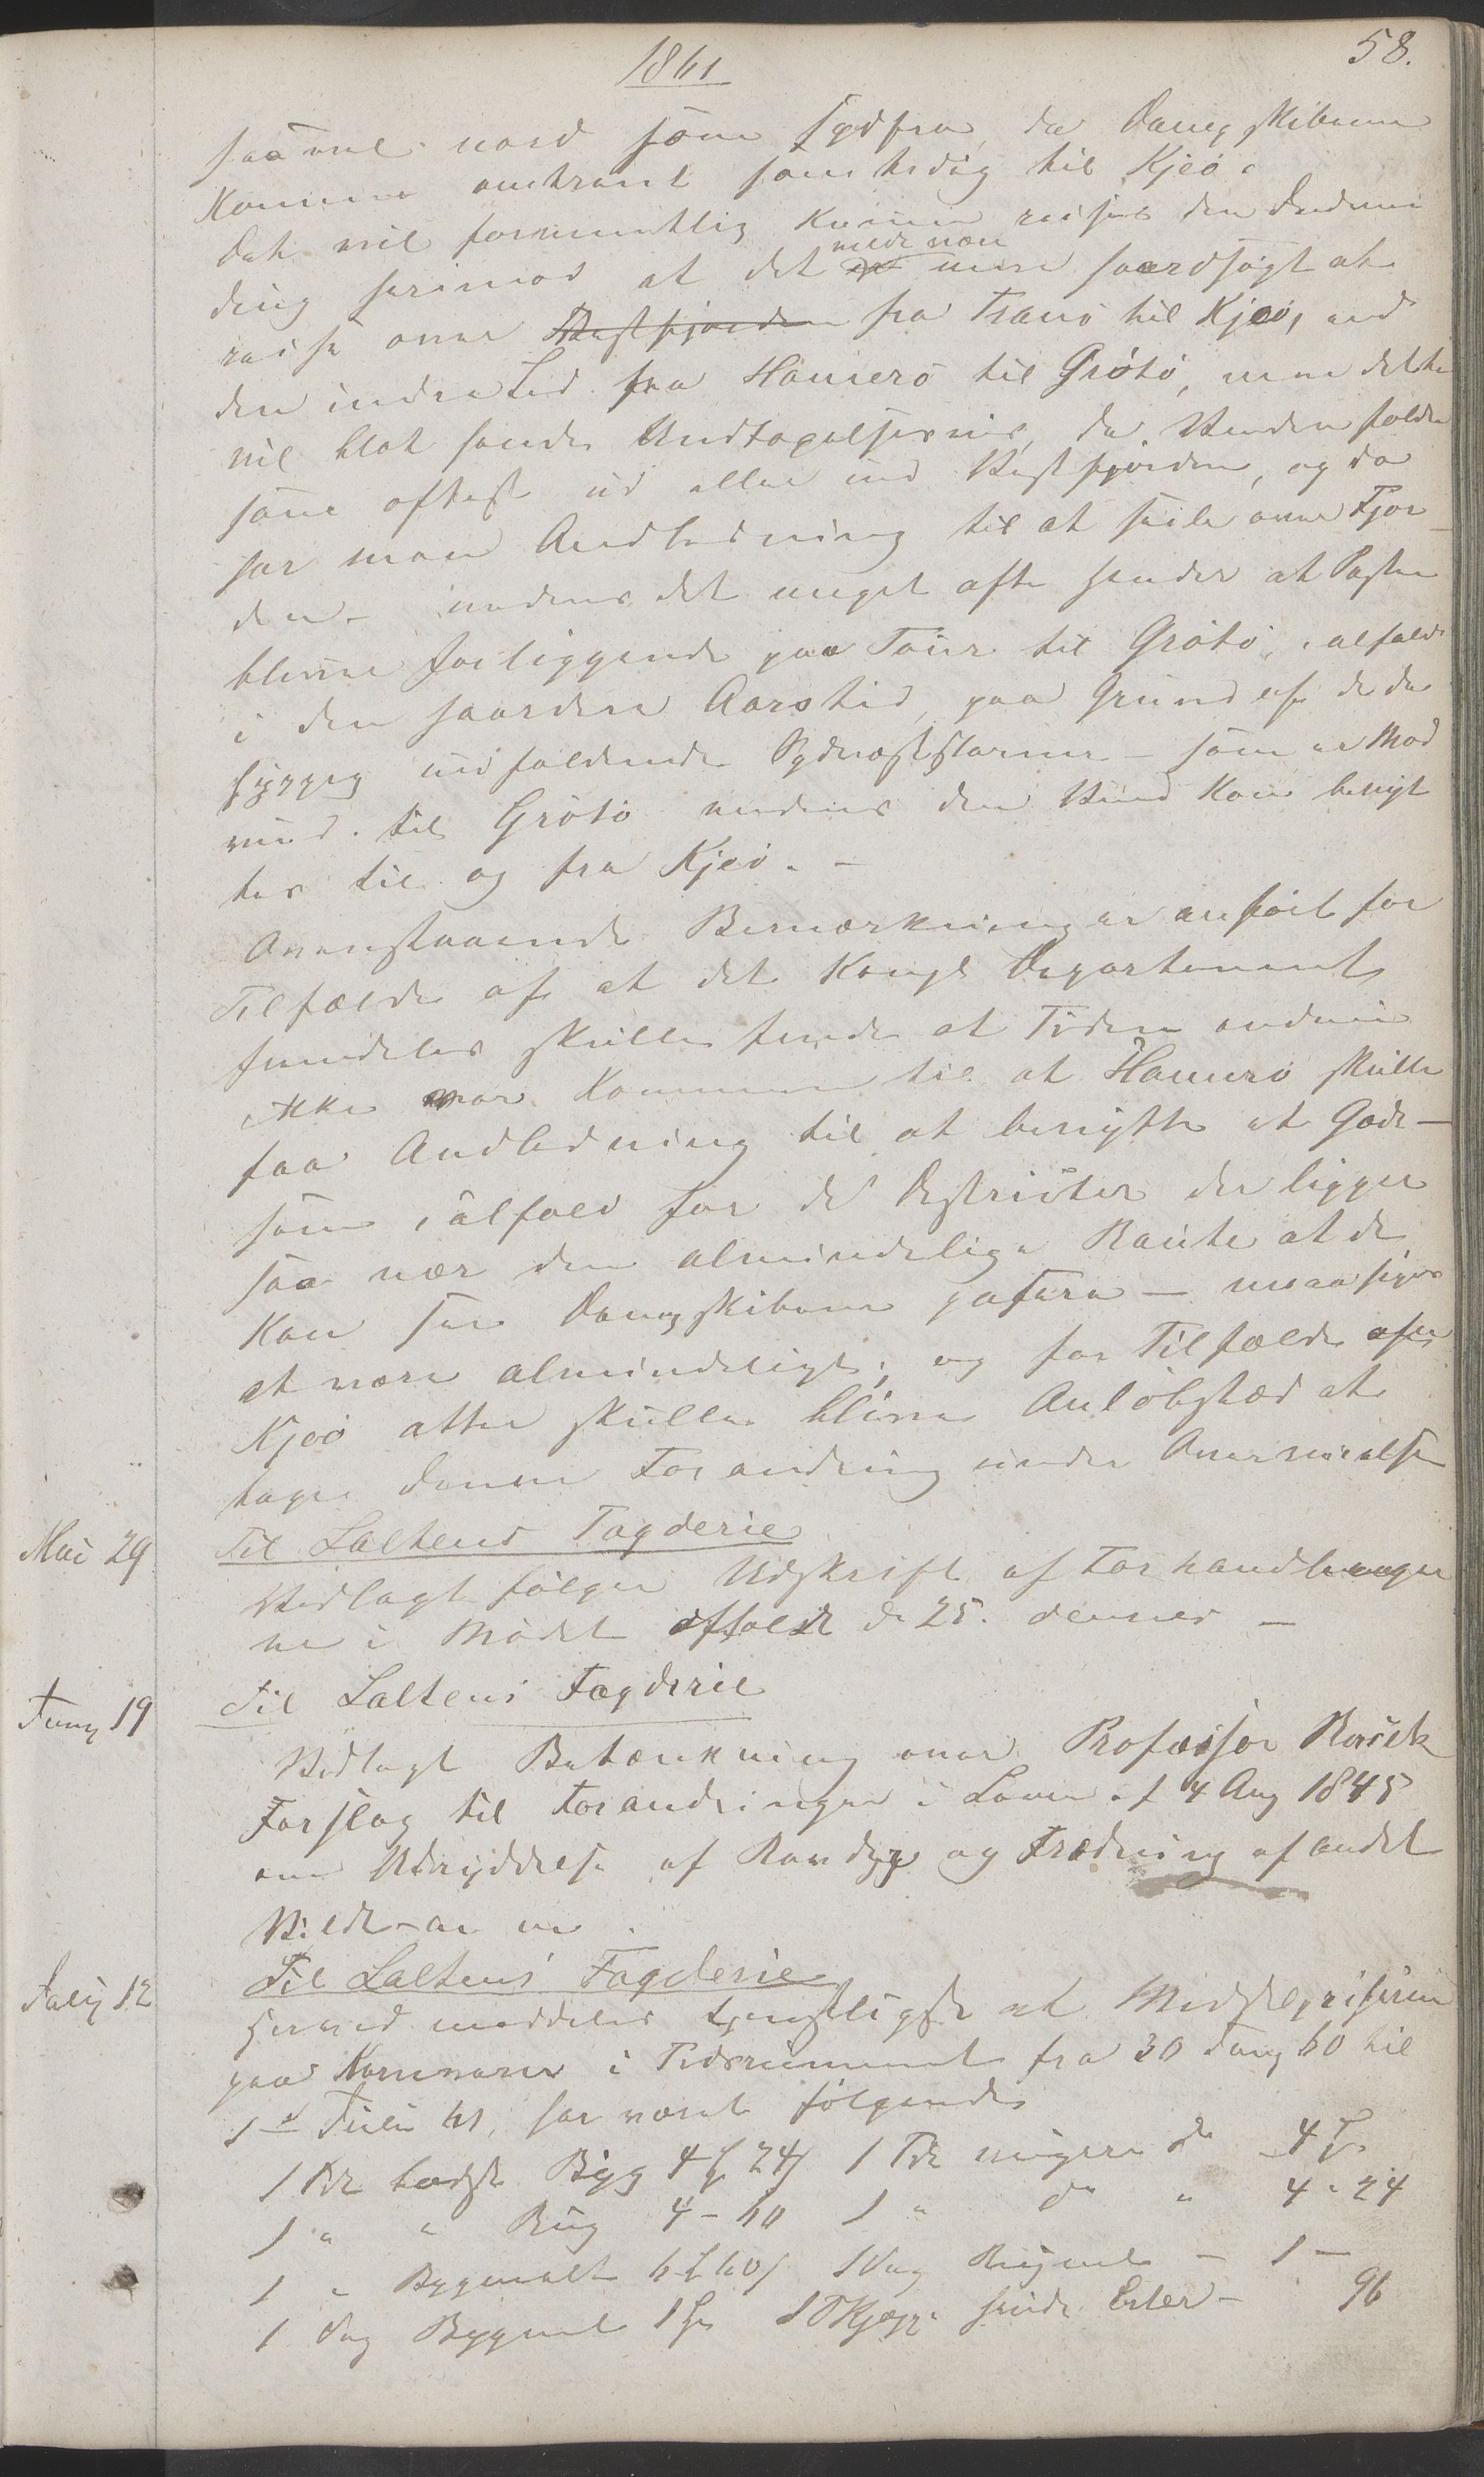 1861
58.
saavel nord som Sydfra, da Dampskibene
komme omtrent samtidig til Kjeø.
Det vil formentlig kunne reises den Indven
ding herimod at det vilde være mere haardføgt at
reise over Vestfjorden fra Tranø til Kjeø, end
den indre Led fra Hamerø til Grøtø, men dette
vil blot hende Undtagelsesvis, da Vinden holder
som oftest ud eller ind Vestfjorden, og da
har man Andledning til at seile over Fjor-
den - medens det meget ofte hender at Posten
blive forliggende paa Tour til Grøtø, ialfald
i den haardere Aarstid, paa Grund af de da
hyppig indfaldende Sydvæststorme - som er Mod
vind til Grøtø medens den Vind kan benyt
tes til og fra Kjeø. -
Ovenstaaende Bemærkninger anført for
Tilfælde af at det Kongl Departement
fremdeles skulle finde at Tiden endnu
ikke var kommen til at Hamerø skulle
faa Andledning til at benytte et Gode -
som ialfald for de Distrikter der ligger
saa nær den almindelige Route at de
kan see Dampskibene passere - maa siges
at være almindeligt; og for Tilfælde af at
Kjeø atter skulle blive Anløbsted at
tage denne Forandring under Overveielse
Mai 29
Til Saltens Fogderie
Vedlagt følger Udskrift af Forhandlinger
ne i Mødet afholdt d 25. dennes -
Juny 19
Til Saltens Fogderie
Vedlagt Betænkning over Professor Rasch
Forslag til Forandringer i Loven af 4 Aug 1845
om Udryddelse af Rovdyr og Fredning af andet
Vildt -
July 12
Til Saltens Fogderie
Herved meddeles tjenstligst at Middelpriserne
paa Kornvarer i Tidsrummet fra 30 Juny 60 til
1ste Juli 61, har været følgende
1 Tde bedste Byg 4 24 1 Tde ringere do 4
1 " " Rug 4 - 60 1 " do " 4 " 24
1 " Bygmalt 6 60 1 Vog Rugmel - 1 -
1 Vog Bygmel 1 1 Skjeppe hvide Erter - 96